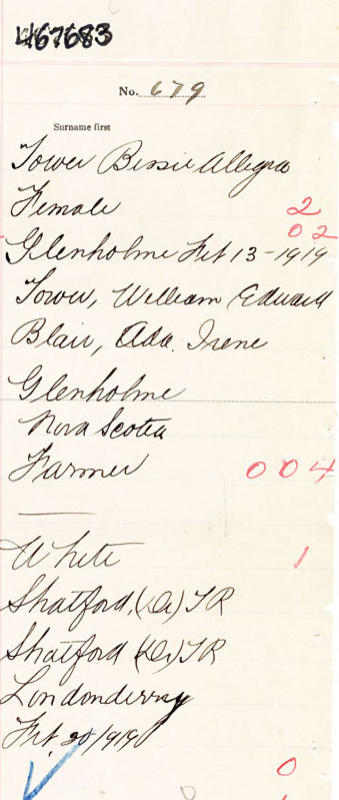 467683
No. 679
Surname first
Tower Bessie Allegra
Female 2
0 2
Glenholme Feb 13-1919
Tower, William Edward
Blair, Ada Irene
Glenholme
Nova Scotia
Farmer 004
White 1
Shatford, (Dr) T R
Shatford (Dr) T R
Londonderry
Feb. 20/1919
0